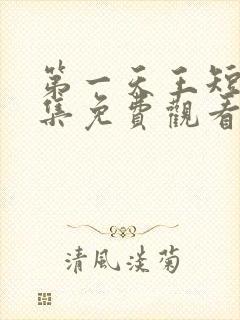 第一天王短
集免費觀看
清風淡菊